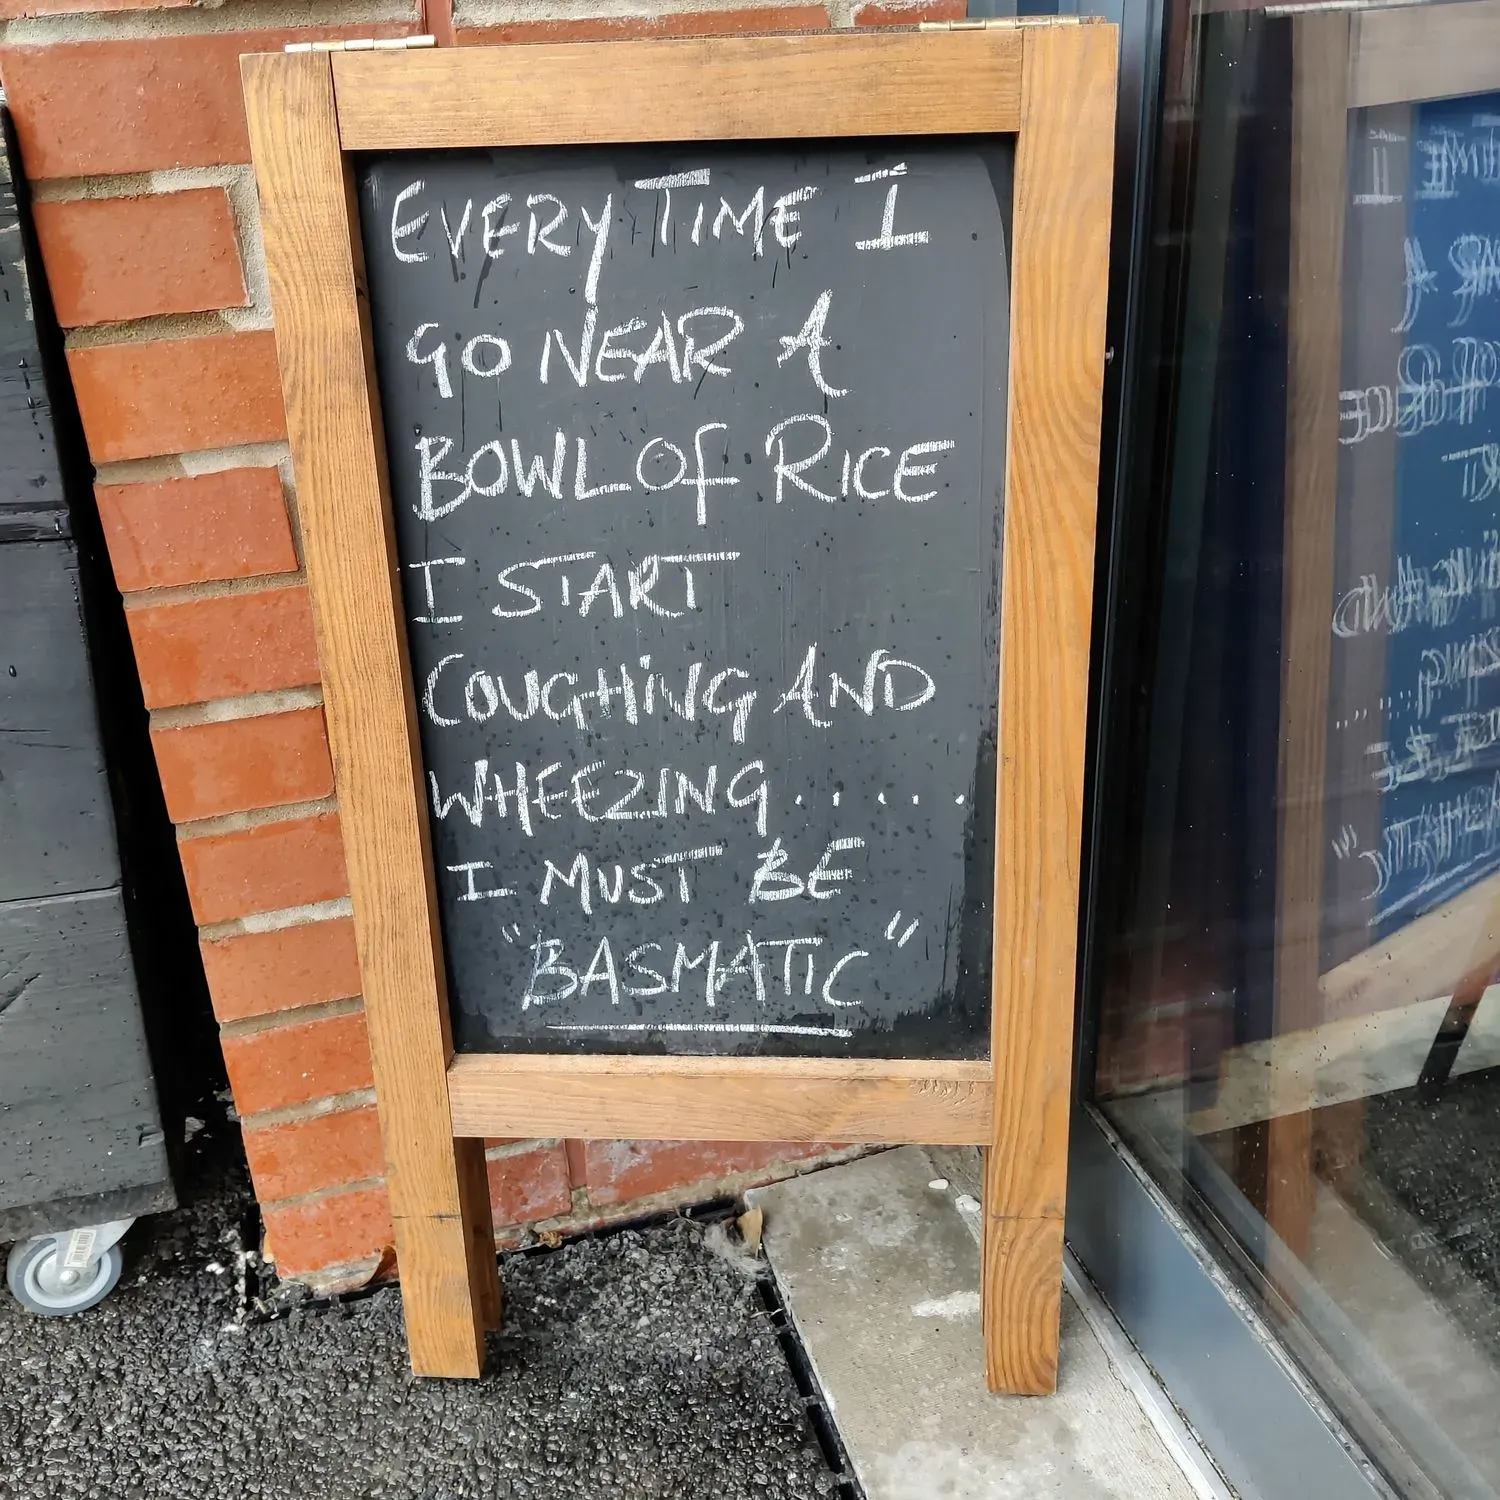 EVERY TIME I
GO NEAR A
BOWL OF RICE
I START
COUGHING AND
WHEEZING.....
I MUST BE
"BASMATIC"